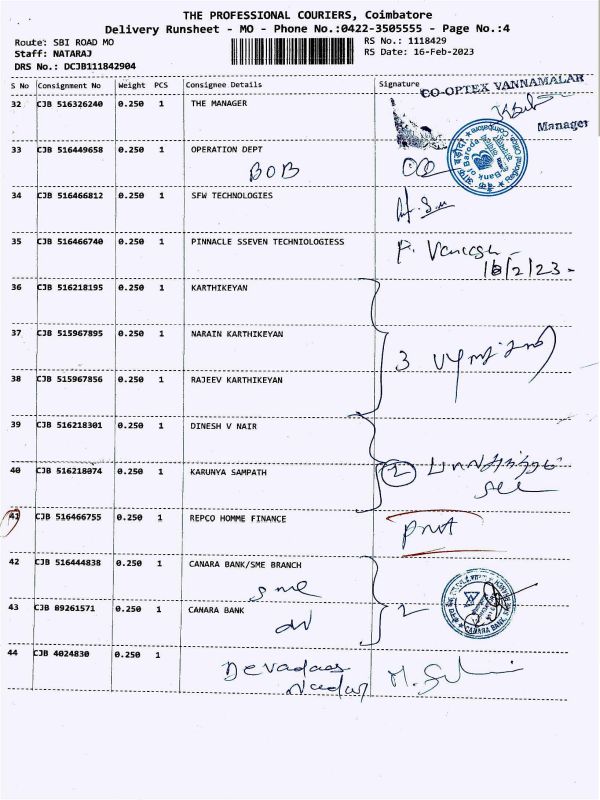 THE PROFESSIONAL COURIERS, Coimbatore
Delivery Runsheet - MO - Phone No.:0422-3505555 - Page No.:4
Route: SBI ROAD MO
RS No.: 1118429
Staff: NATARAJ
RS Date: 16-Feb-2023
DRS No.: DCJB111842904
S No Consignment No Weight PCS Consignee Details Signature
CO-OPTEX VANNAMALAR
32 CJB 516326240 0.250 1 THE MANAGER
Manager
33 CJB 516449658 0.250 1 OPERATION DEPT
BOB
Bank of Baroda
34 CJB 516466812 0.250 1 SFW TECHNOLOGIES
35 CJB 516466740 0.250 1 PINNACLE SSEVEN TECHNIOLOGIESS
16/2/23
36 CJB 516218195 0.250 1 KARTHIKEYAN
37 CJB 515967895 0.250 1 NARAIN KARTHIKEYAN
3
38 CJB 515967856 0.250 1 RAJEEV KARTHIKEYAN
39 CJB 516218301 0.250 1 DINESH V NAIR
40 CJB 516218074 0.250 1 KARUNYA SAMPATH
2
41 CJB 516466755 0.250 1 REPCO HOMME FINANCE
42 CJB 516444838 0.250 1 CANARA BANK/SME BRANCH
sme
43 CJB 89261571 0.250 1 CANARA BANK
2
CANARA BANK
44 CJB 4024830 0.250 1
Devadaas
Nadar